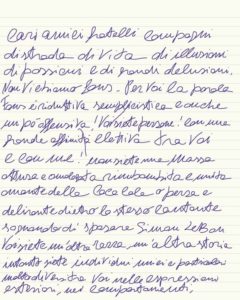 cari amici fratelli compagni
di strada di vita di illusioni
di passioni e di grandi delusioni.
Non vi chiamo fans. Per voi la parola
fans è riduttiva semplicistica e anche
un pò offensiva! Voi siete persone! con una
grande affinità elettiva tra voi
e con me! non siete una massa
ottusa e omologata rimbambita e
amante della Coca Cola o persa e
delirante dietro lo stesso cantante
sognando di sposare Simon Le Bon
Voi siete un'altra razza, un'altra storia
intanto siete individui unici e particolari
molto diversi tra voi nelle espressioni
esteriori, nei comportamenti,